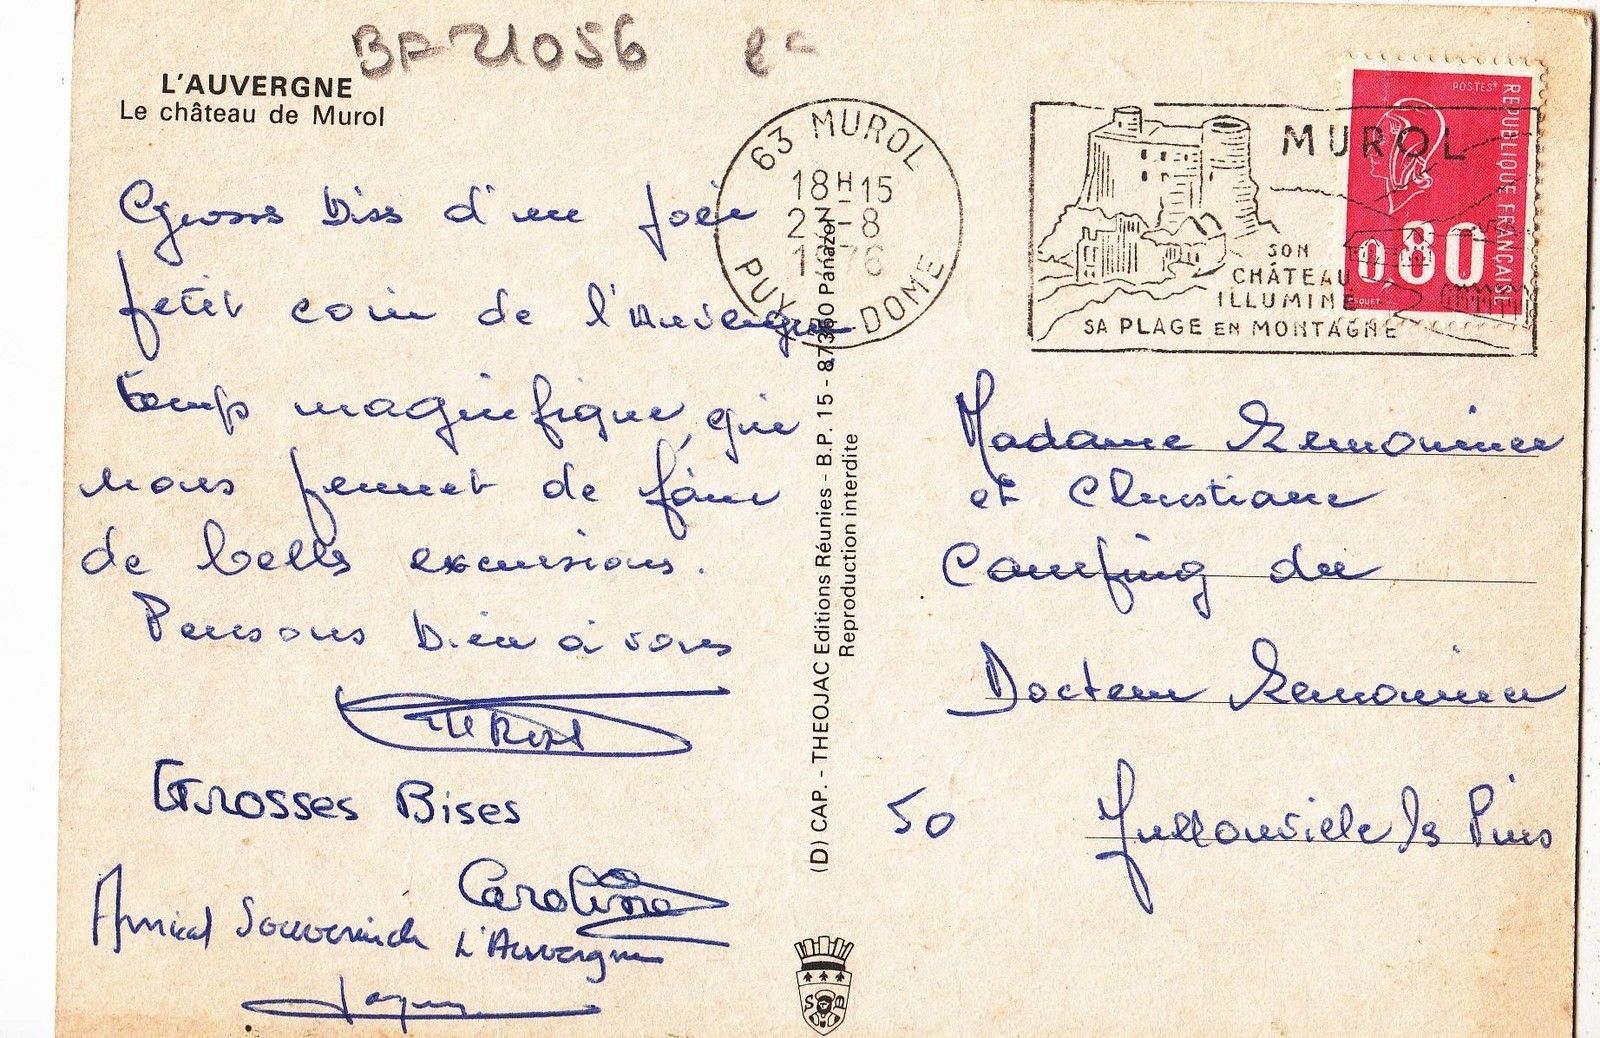 BF 21056 2€
L'AUVERGNE
Le château de Murol
Grosses bises d'un joli
petit coin de l'Auvergne
temps magnifique, qui
nous permet de faire
de belles excursions.
Pensons bien à vous
GROSSES BISES
Caroline
Amical Souvenir de
L'Auvergne
63 MUROL
18H15
23-8
1976
PUY DOME
MUROL
SON
CHÂTEAU
ILLUMINÉ
SA PLAGE EN MONTAGNE
POSTES
REPUBLIQUE FRANÇAISE
0,80
(D) CAP. - THEOJAC Editions Réunies - B.P. 15 - 87350 Panazol
Reproduction interdite
Madame Lemonnier
et Christiane
Camping du
Docteur Lemonnier
50 Jullouville les Pins
S B